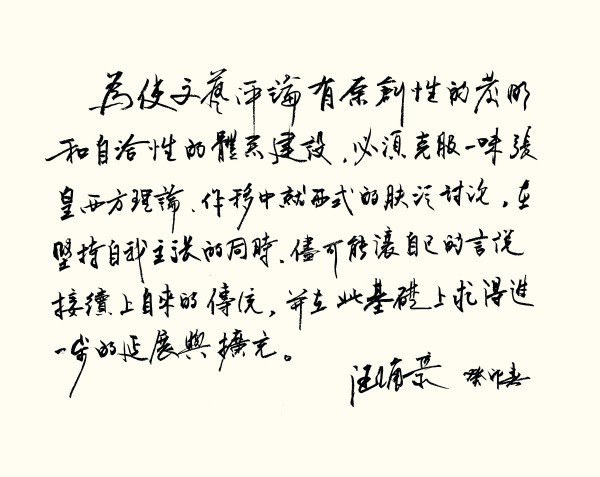 為使文藝評論有原創性的發明
和自洽性的體系建設,必須克服一味張
皇西方理論、作移中就西式的肤泛討。在
堅持自我主張的同時,儘可能讓自己的言説
接續上自來的傳統,並在此基礎上求得進
一步的延展與擴充。
汪涌豪 癸卯春